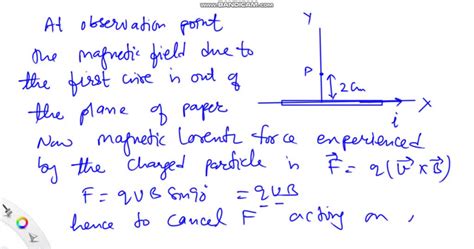 www.BANDICAM.com
At observation point
the magnetic field due to
the first wire is out of
the plane of paper
Y
P
2 cm
X
i
Now magnetic Lorentz force experienced
by the charged particle is F⃗ = q(V⃗ × B⃗)
F = qVB Sin90° = qVB
hence to cancel F acting on